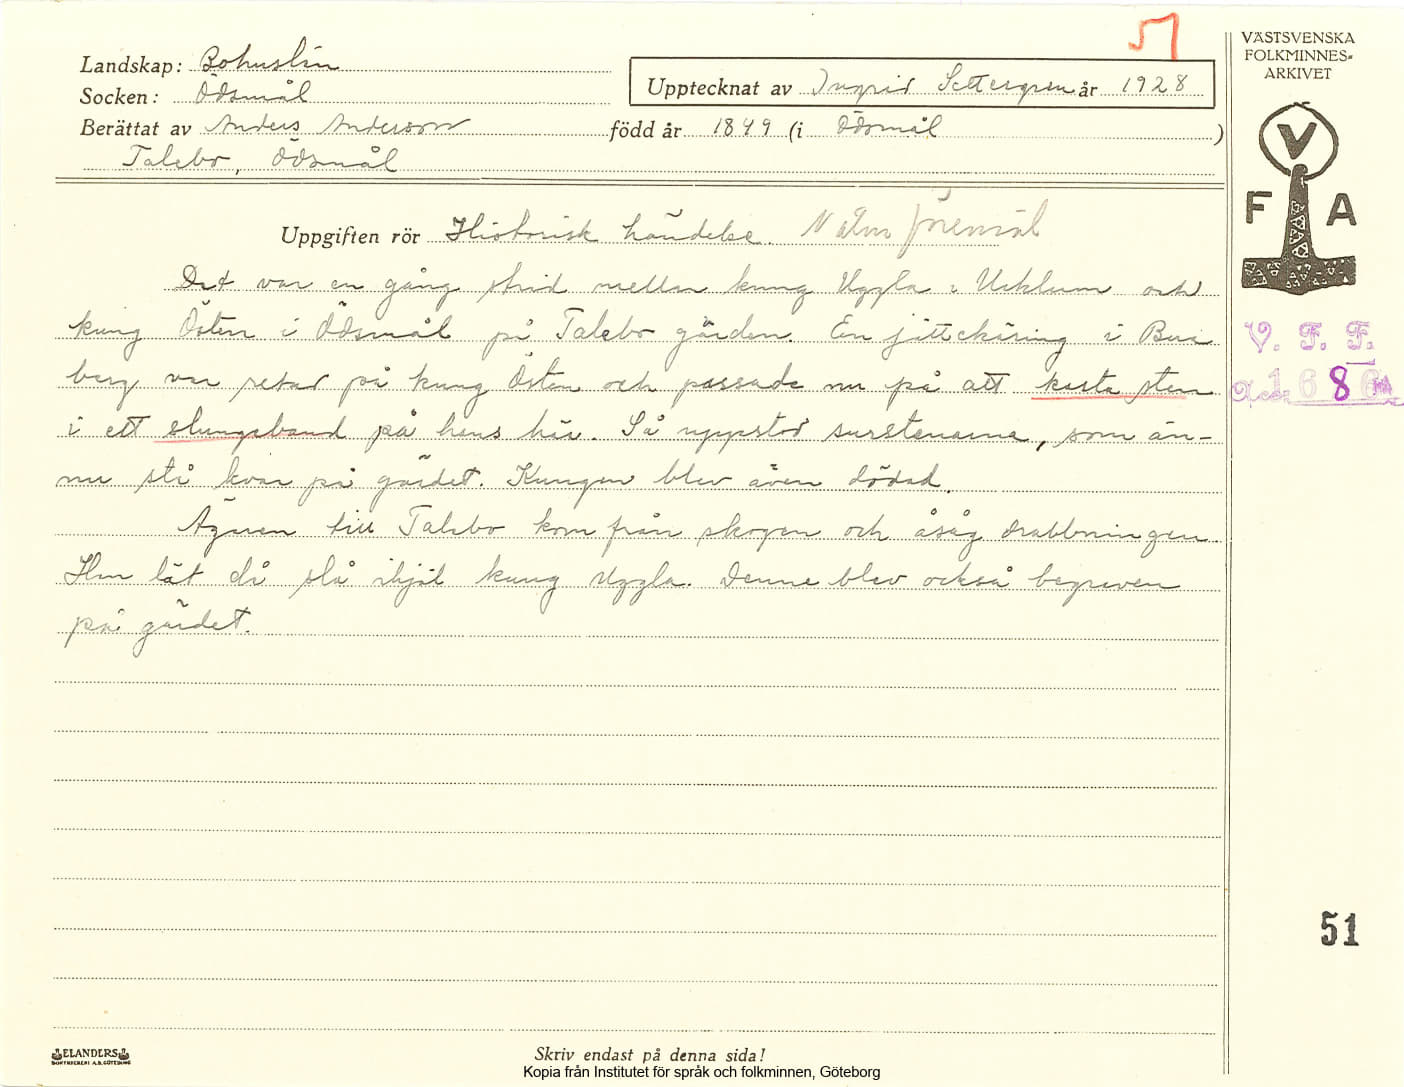 51
Landskap: Bohuslän
Socken: Ödsmål
Upptecknat av Ingrid Settergren år 1928
Berättat av Anders Andersson född år 1849 (i Ödsmål )
Talebo, Ödsmål
VÄSTSVENSKA
FOLKMINNES=
ARKIVET
V
F A
Uppgiften rör Historisk händelse. föremål
Det var en gång strid mellan kung Uggla i Ucklum och
kung Östen i Ödsmål på Talebo gärden. En jättekäring i Bur
berg var retad på kung Östen och passade nu på att kasta sten
i ett slungeband på hans här. Så uppstod surstenarna, som än-
nu stå kvar på gärdet. Kungen blev även dödad.
Ägaren till Talebo kom från skogen och åsåg drabbningen.
Hon lät då slå ihjäl kung Uggla. Denne blev också begraven
på gärdet.
V. F. F.
Acc. 1686
51
ELANDERS
BOKTRYCKERI A.B. GÖTEBORG
Skriv endast på denna sida!
Kopia från Institutet för språk och folkminnen, Göteborg